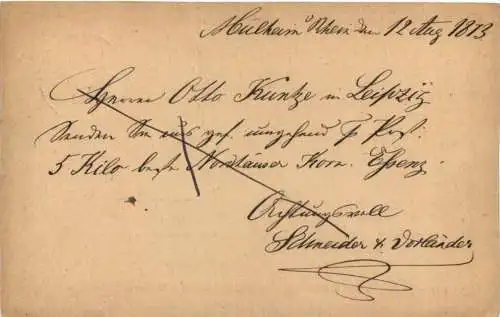 Mülheim a/Rhein den 12 Aug 1873
Herrn Otto Kuntze in Leipzig
Senden Sie uns gef. umgehend p Post
5 Kilo beste Nordhäuser Korn Essenz.
Achtungsvoll
Schneider & Vorländer